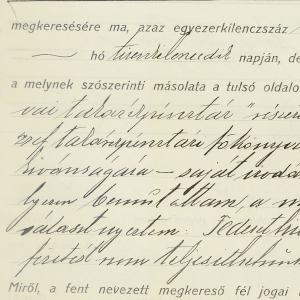 megkeresésére ma, azaz egyezerkilenczszáz
hó tizenkilencedik napján, de
a melynek szószerinti másolata a tulsó oldalo
vai takarékpénztár" részvé
zsef takarékpénztári főkönyve
kivánságára – saját iroda
lyem bemutattam, a m
választ nyertem: Fedezet hi
fizetést nem teljesíthetünk
Miről, a fent nevezett megkereső fél jogai